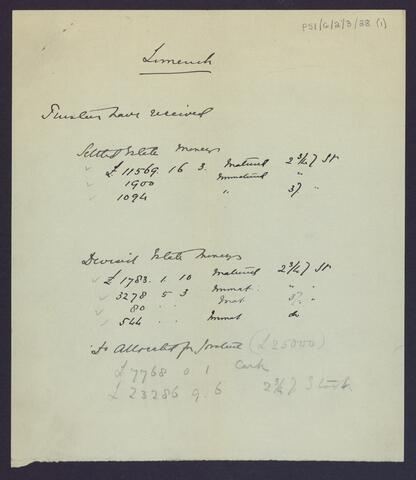 PS1/6/2/3/28 (1)
Limerick
Trustees have received
Settled Estate Moneys
£ 11569 16 3. Matured 2 3/4 % St
1900 Immatured " "
1094 " 3% "
Devised Estate Moneys
£ 1783. 1. 10 Matured 2 3/4 % St
3278 5 3 Immat. " "
80 . . Mat 3% "
544 . . Immat do
To Allocated for Jointure (£25000)
£ 7768 0 1 Cash
£ 23286 9. 6 2 3/4 % Stock